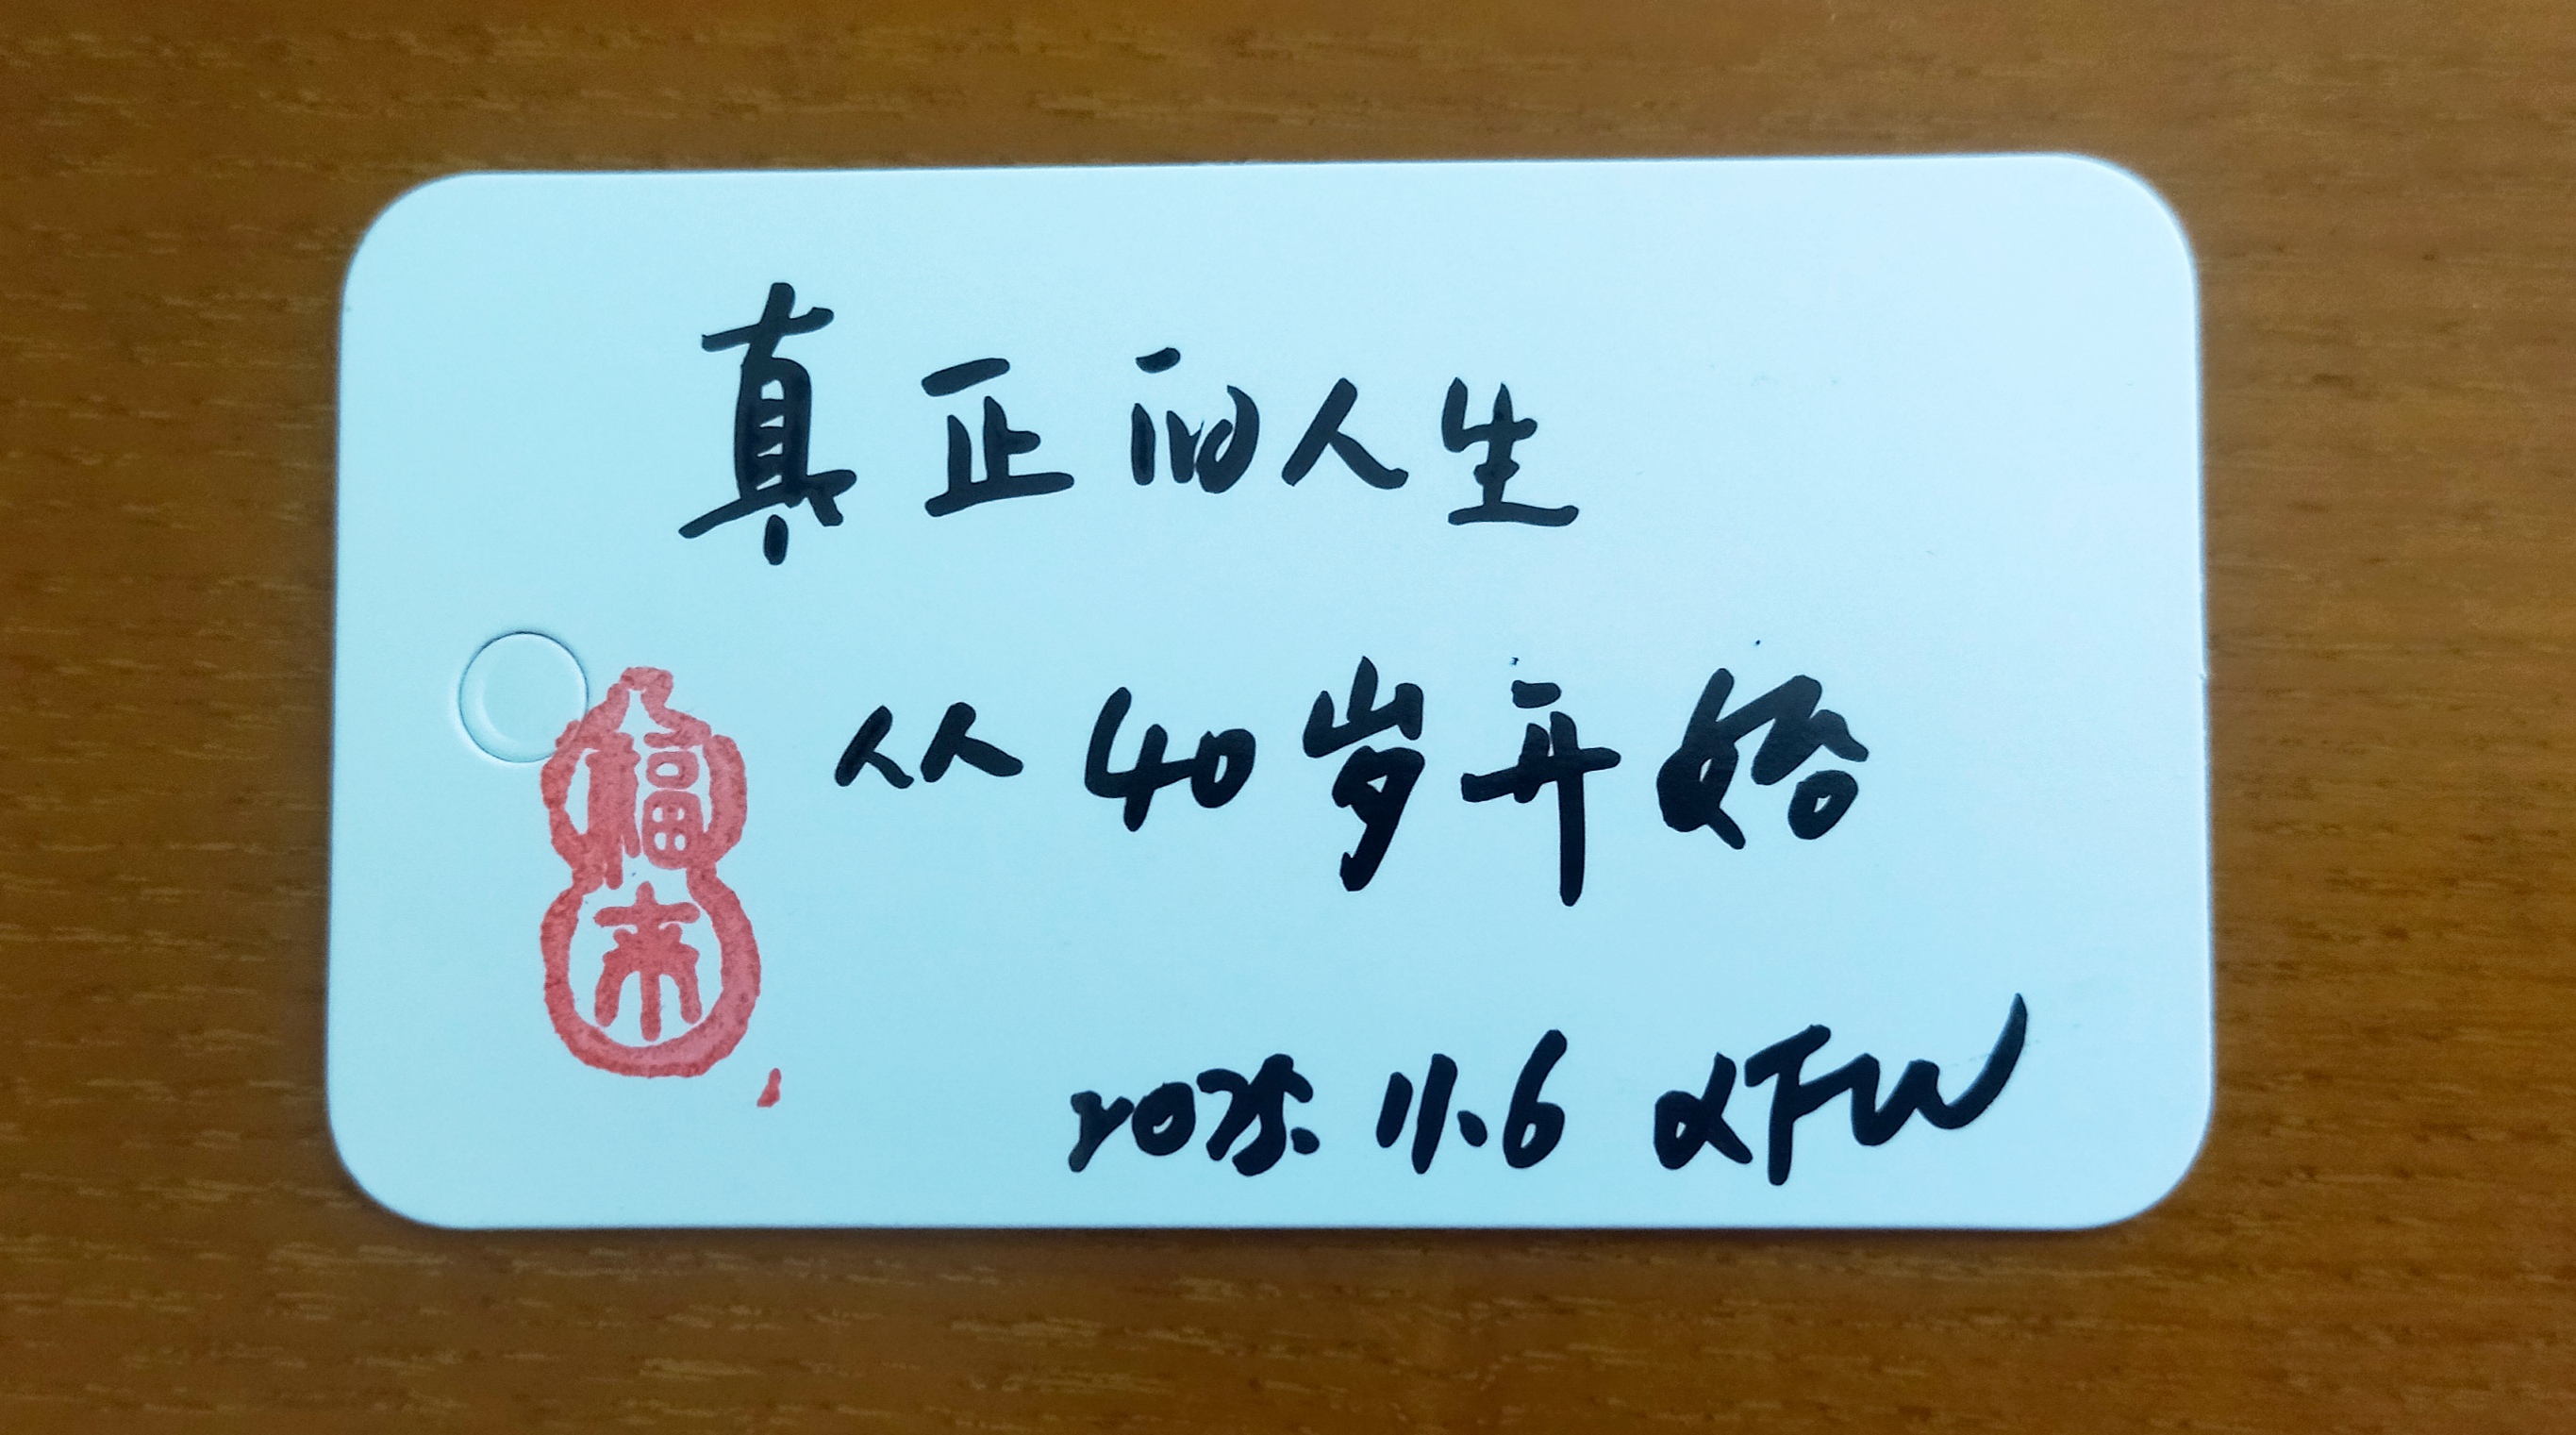 真正的人生
从40岁开始
福来
2025.11.6 XFW